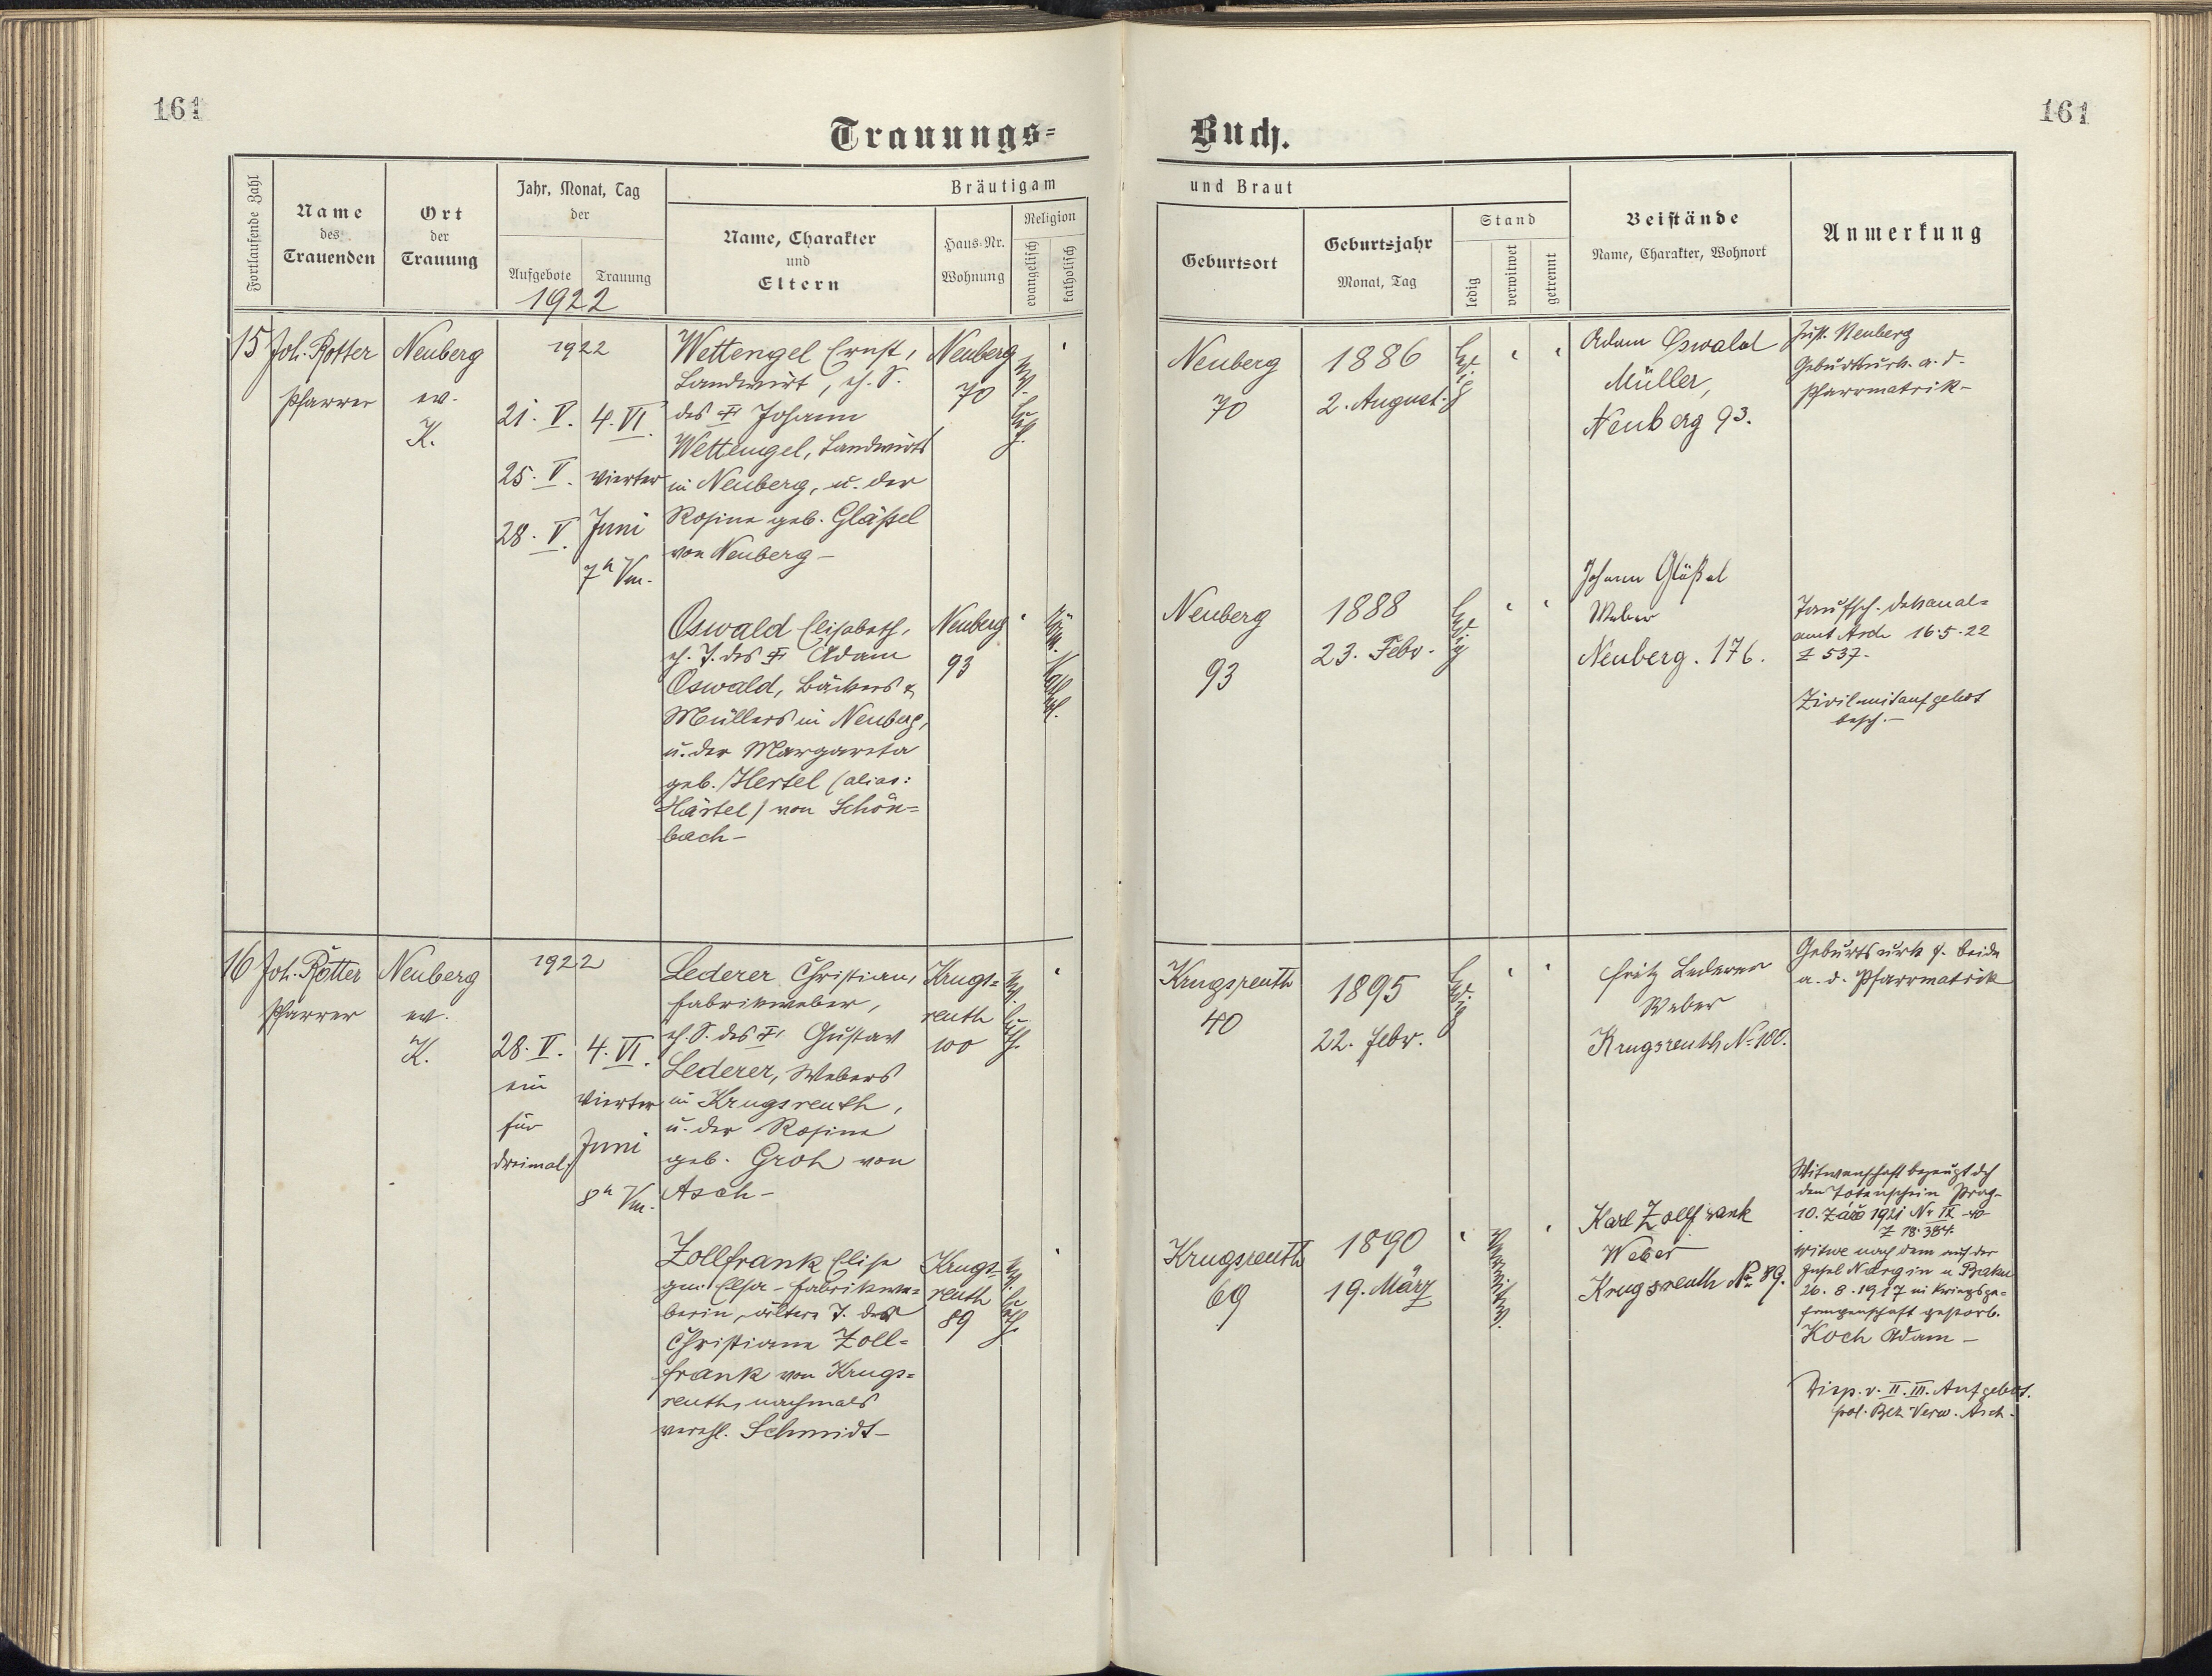 161
161
Trauungs=
Buch.
Fortlaufende Zahl
Name
des
Trauenden
Ort
der
Trauung
Jahr, Monat, Tag
der
Aufgebote
Trauung
1922
Bräutigam
Name, Charakter
und
Eltern
Haus-Nr.
Wohnung
Religion
evangelisch
katholisch
und Braut
Geburtsort
Geburtsjahr
Monat, Tag
Stand
ledig
verwitwet
getrennt
Beistände
Name, Charakter, Wohnort
Anmerkung
15
Joh. Rotter
Pfarrer
Neuberg
ev.
K.
1922
21. V.
25. V.
28. V.
4. VI.
vierter
Juni
7h Vm.
Wettengel Ernst,
Landwirt, eh. S.
des Johann
Wettengel, Landwirts
in Neuberg, u. der
Rosina geb. Gläßel
von Neuberg –
Neuberg
70
Ev.
Luth.
Neuberg
70
1886
2. August.
Ledig
Adam Oswald
Müller,
Neuberg 93.
Zust. Neuberg
Geburtsurk. a. d.
Pfarrmatrik –
Oswald Elisabeth,
eh. T. des Adam
Oswald, Bäckers &
Müllers in Neuberg,
u. der Margareta
geb. Hertel (alias:
Härtel) von Schön=
bach –
Neuberg
93
Röm.
Kathol.
Neuberg
93
1888
23. Febr.
Ledig
Johann Gläßel
Weber
Neuberg. 176.
Taufsch. Dekanal=
amt Asch 16.5.22
Z 537.
Zivilmitaufgebot
besch. –
16
Joh. Rotter
Pfarrer
Neuberg
ev.
K.
1922
28. V.
ein
für
dreimal.
4. VI.
vierter
Juni
8h Vm.
Lederer Christian,
Fabrikweber,
eh. S. des Gustav
Lederer, Webers
in Krugsreuth,
u. der Rosina
geb. Groh von
Asch –
Krugs=
reuth
100
Ev.
Luth.
Krugsreuth
40
1895
22. Febr.
Ledig
Fritz Lederer
Weber
Krugsreuth No 100.
Geburtsurk f. beide
a. d. Pfarrmatrik
Zollfrank Elise
gen. Elsa – Fabrikwe=
berin, ältere T. der
Christiana Zoll=
frank von Krugs=
reuth, nachmals
verehl. Schmidt –
Krugs=
reuth
89
Ev.
Luth.
Krugsreuth
69
1890
19. März
Verwitw.
Karl Zollfrank
Weber
Krugsreuth No 89.
Witwenschaft bezeugt dch
den Totenschein Prag –
10. Září 1921 Nr IX –
Z 18.384.
Witwe nach dem auf der
Insel Nargin u Baku
26. 8. 1917 in Kriegsge=
fangenschaft gestorb.
Koch Adam –
Disp. v. II. III. Aufgebot.
pol. Bez. Verw. Asch.